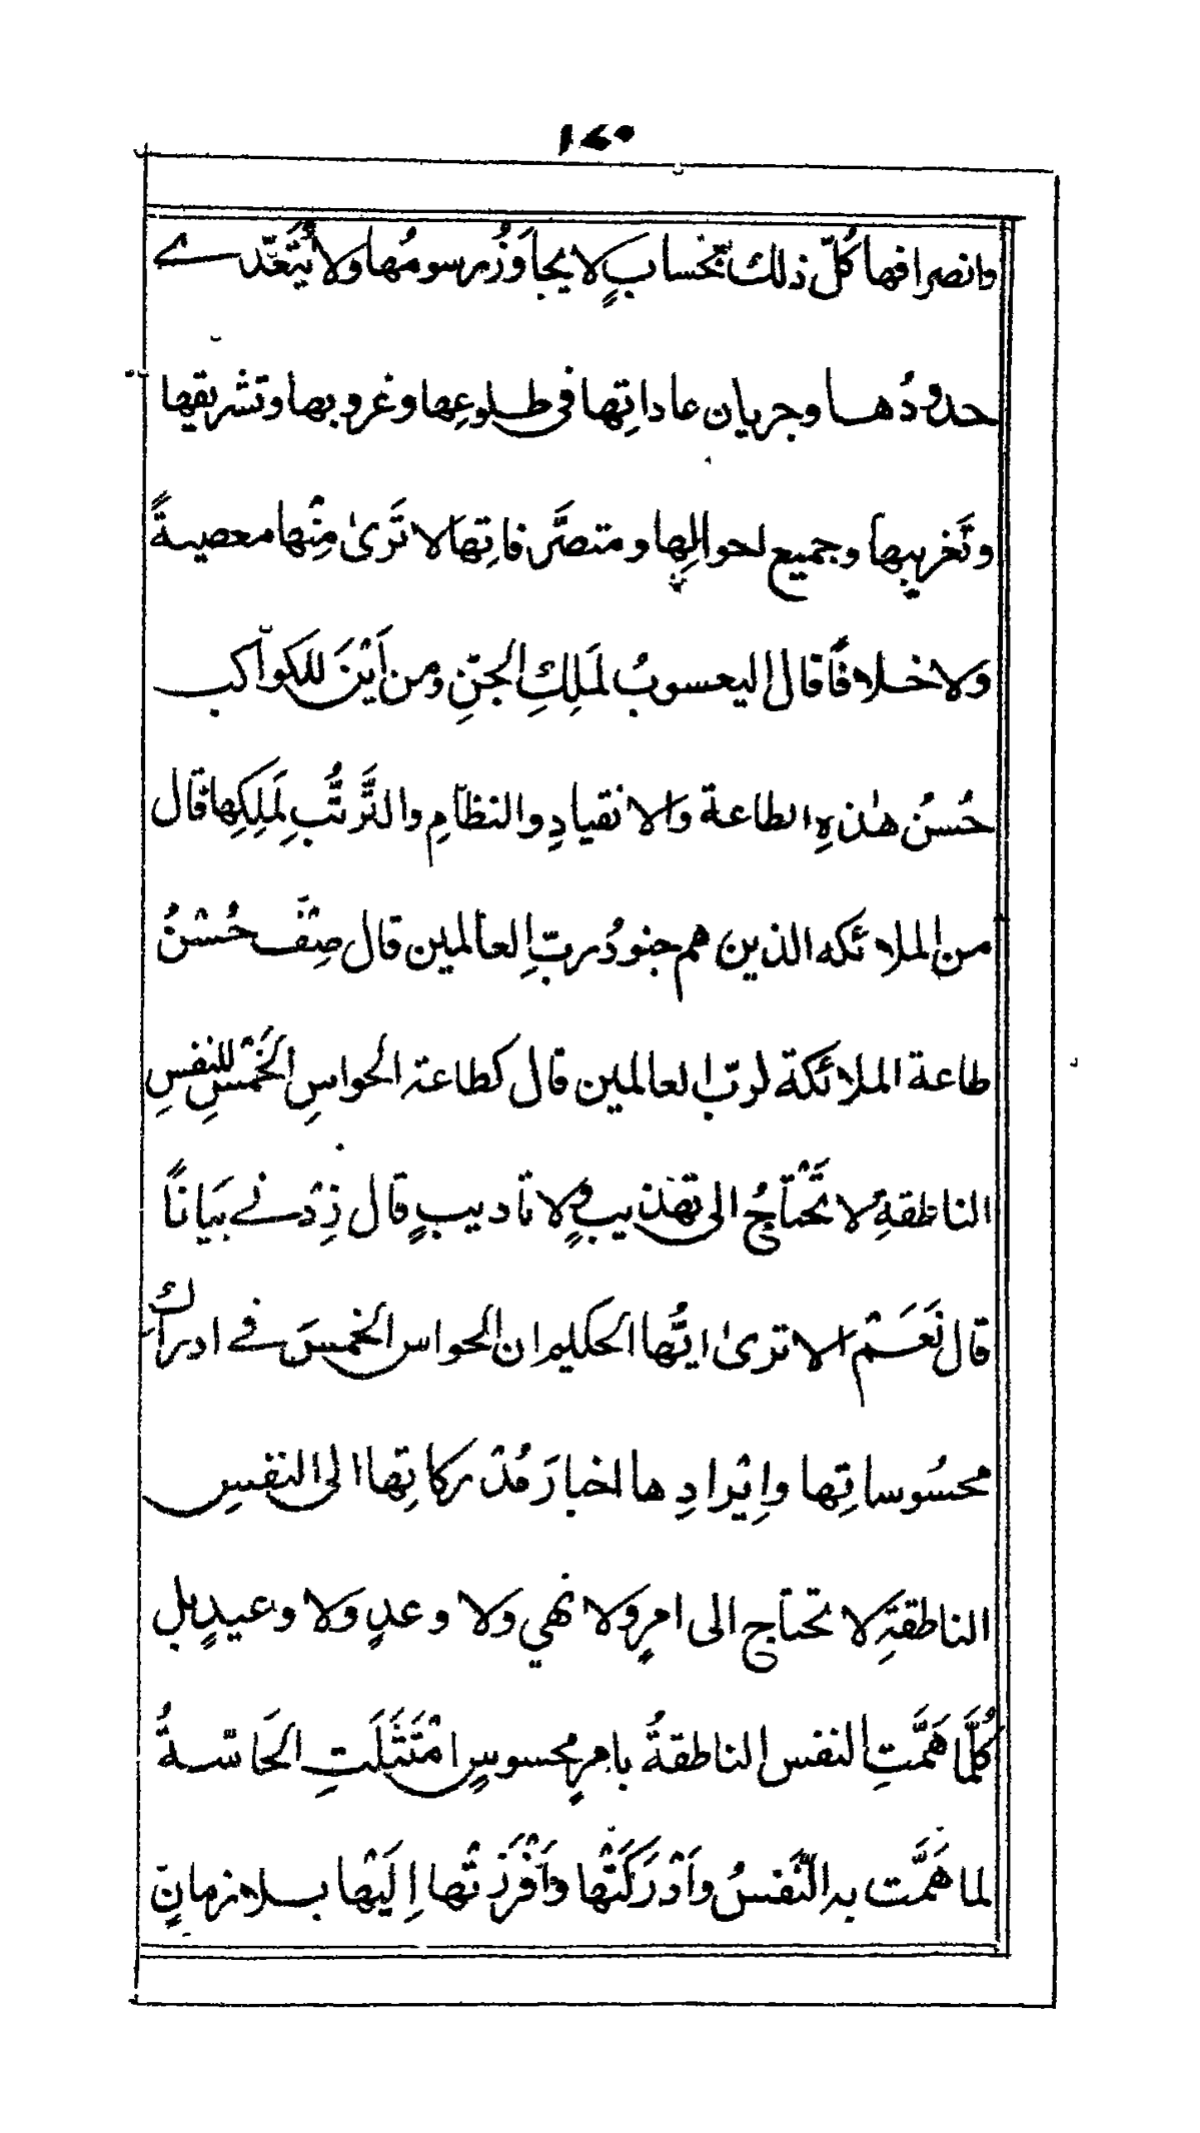 ۱۷۰
وانصرافها كُلّ ذلك بحسابٍ لا يجاوَزُ رسومُها ولا يُتَعَدّے
حدودُها وجريان عاداتِها في طلوعِها وغروبها وتشريقها
وتَغريبِها وجميع احوالِها ومتصرَّفاتِها لا تَرىٰ مِنْها معصيةً
ولا خلافًا قال اليعسوبُ لمَلِكِ الجنِّ ومن اَيْنَ للكواكب
حُسْنُ هٰذهِ الطاعة والانقيادِ والنظامِ والتَّرتُّبِ لِمَلِكِها قال
من الملائكه الذين هم جنودُ ربِّ العالمين قال صِفْ حُسْنُ
طاعة الملائكة لربّ العالمين قال كطاعة الحواسِ الخَمْسِ للنفسِ
الناطقةِ لا تَحْتاجُ الى تهذيبٍ ولا تاديبٍ قال زِدْنے بَيانًا
قال نَعَمْ الا ترىٰ ايُّها الحكيم ان الحواس الخمسَ في ادراك
محسُوساتِها واِيْرادِها اخبارَ مُدْركاتِها الى النفسِ
الناطقةِ لا تحتاج الى امرٍ ولا نهي ولا وعدٍ ولا وعيدٍ بل
كُلَّما هَمَّتِ النفس الناطقةُ بامرٍ محسوسٍ امْتَثَلَتِ الحَاسّةُ
لما هَمَّت به النَّفسُ واَدْرَكَتْها واَفْرَزَتْها اِلَيْها بلا زمانٍ